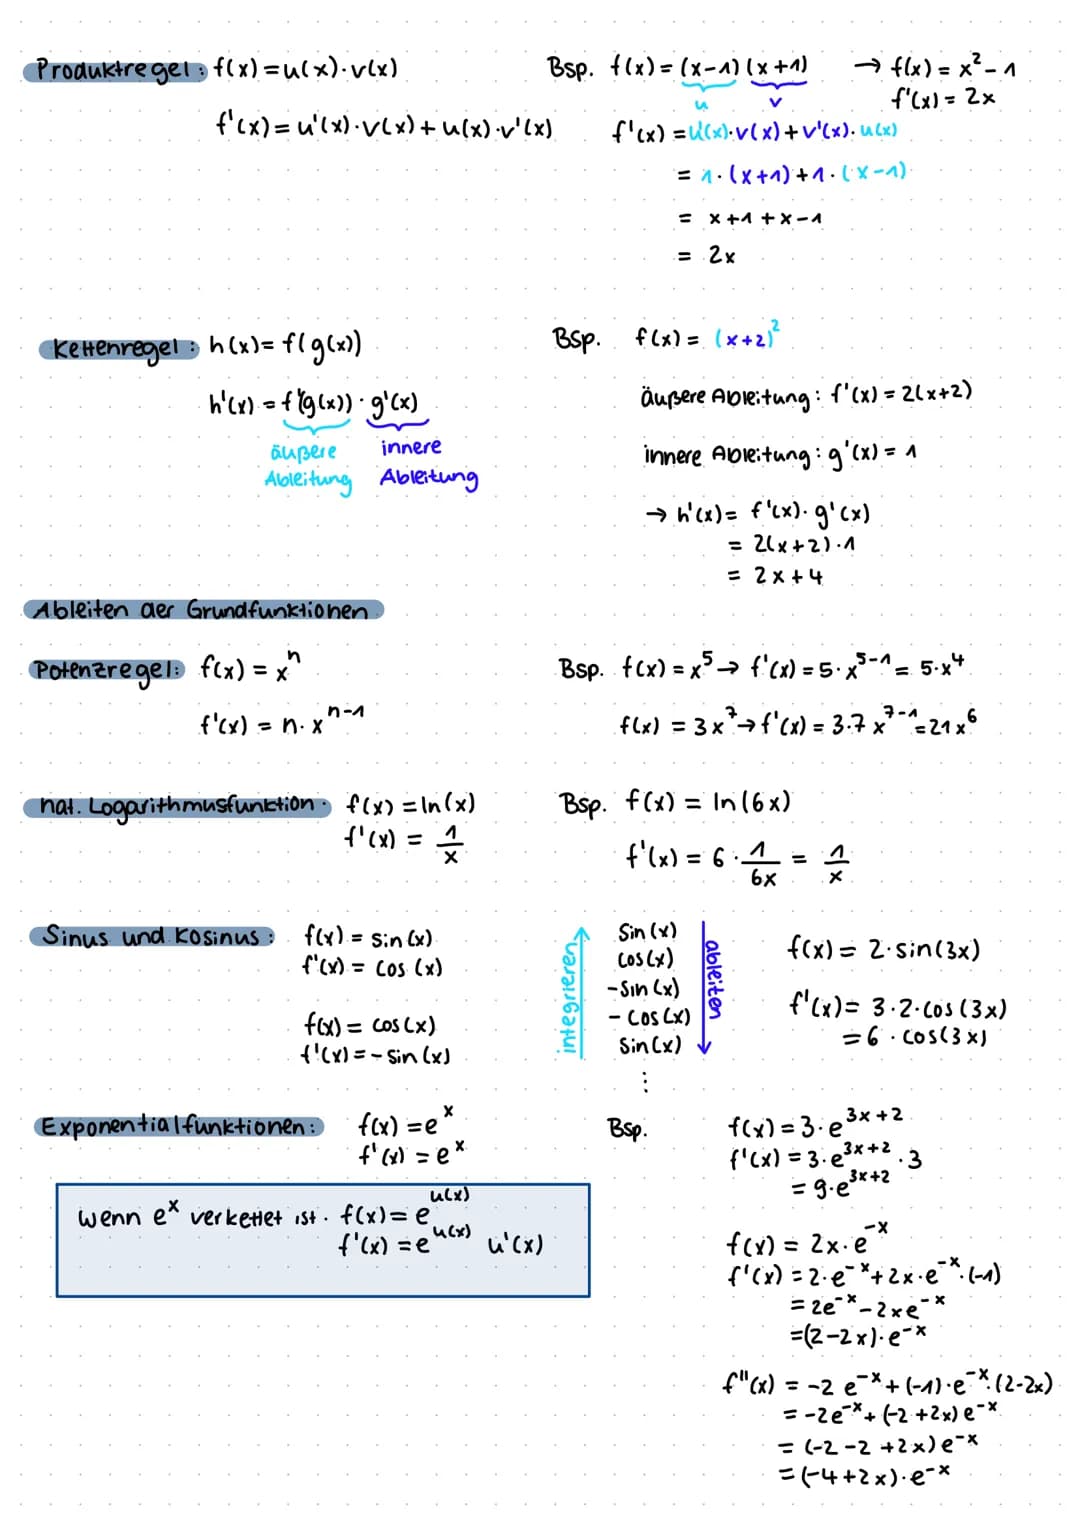 Produktregel: f(x) = u(x)·v(x)
f'(x) = u'(x)·v(x) + u(x)·v'(x)
Bsp. f(x) = (x-1)(x+1) → f(x) = x² - 1
u v f'(x) = 2x
f'(x) = u'(x)·v(x) + v'(x)·u(x)
= 1·(x+1) + 1·(x-1)
= x+1+x-1
= 2x
Kettenregel: h(x) = f(g(x))
h'(x) = f'(g(x)) · g'(x)
äußere innere
Ableitung Ableitung
Bsp. f(x) = (x+2)²
äußere Ableitung: f'(x) = 2(x+2)
innere Ableitung: g'(x) = 1
→ h'(x) = f'(x)·g'(x)
= 2(x+2)·1
= 2x+4
Ableiten der Grundfunktionen
Potenzregel: f(x) = xⁿ
f'(x) = n·xⁿ⁻¹
Bsp. f(x) = x⁵ → f'(x) = 5·x⁵⁻¹ = 5·x⁴
f(x) = 3x⁷ → f'(x) = 3·7x⁷⁻¹ = 21x⁶
nat. Logarithmusfunktion: f(x) = ln(x)
f'(x) = 1/x
Bsp. f(x) = ln(6x)
f'(x) = 6·1/6x = 1/x
Sinus und Kosinus: f(x) = sin(x)
f'(x) = cos(x)
f(x) = cos(x)
f'(x) = -sin(x)
integrieren
sin(x)
cos(x)
-sin(x)
-cos(x)
sin(x)
⋮
ableiten
f(x) = 2·sin(3x)
f'(x) = 3·2·cos(3x)
= 6·cos(3x)
Exponentialfunktionen: f(x) = eˣ
f'(x) = eˣ
wenn eˣ verkettet ist: f(x) = e^u(x)
f'(x) = e^u(x) u'(x)
Bsp. f(x) = 3·e^3x+2
f'(x) = 3·e^3x+2·3
= 9·e^3x+2
f(x) = 2x·e^-x
f'(x) = 2·e^-x + 2x·e^-x·(-1)
= 2e^-x - 2xe^-x
= (2-2x)·e^-x
f''(x) = -2e^-x + (-1)·e^-x·(2-2x)
= -2e^-x + (-2+2x)e^-x
= (-2-2+2x)e^-x
= (-4+2x)·e^-x